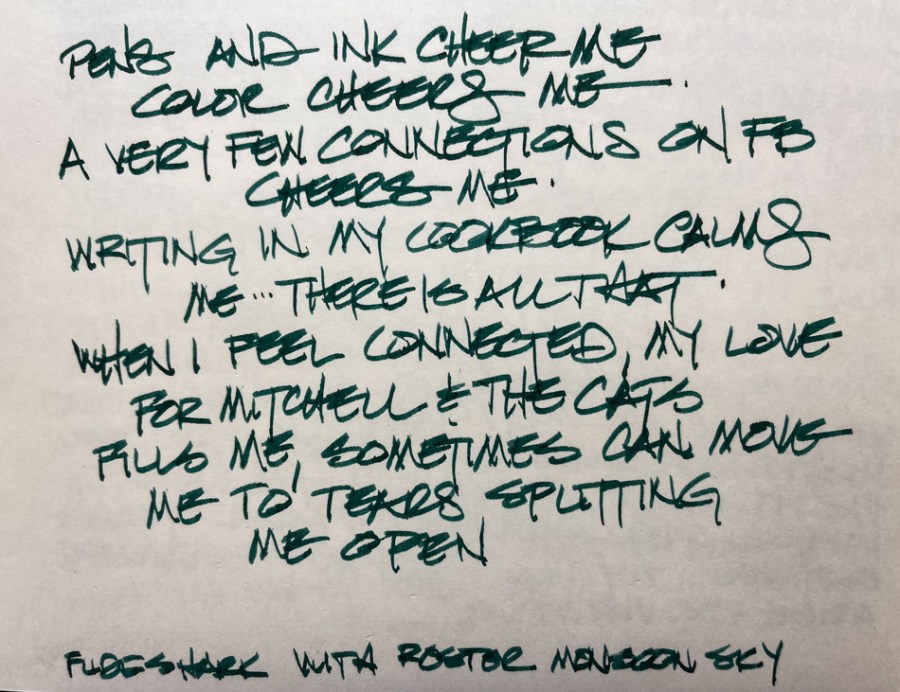 PENS AND INK CHEER ME
COLOR CHEERS ME.
A VERY FEW CONNECTIONS ON FB
CHEERS ME.
WRITING IN MY LOOKBOOK CALMS
ME... THERE IS ALL THAT.
WHEN I FEEL CONNECTED, MY LOVE
FOR MITCHELL & THE CATS
FILLS ME, SOMETIMES CAN MOVE
ME TO TEARS SPLITTING
ME OPEN
FUDESHARK WITH MONSOON SKY